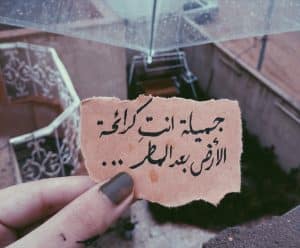 جميلة انت كرائحة
الأرض بعد المطر ...